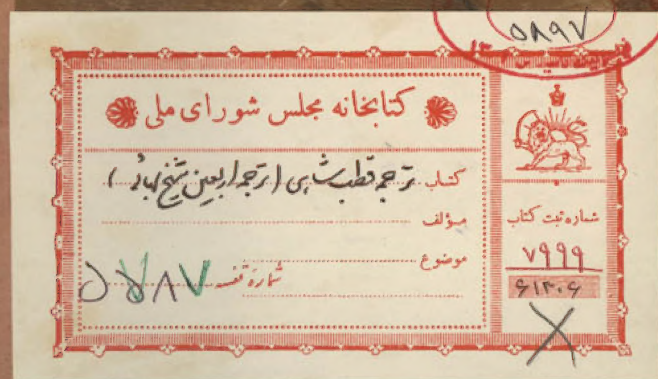 ۵۸۹۷
کتابخانه مجلس شورای ملی
کتاب ترجمه قطب شاهی (ترجمه اربعین شیخ بهائی)
مؤلف
موضوع
شماره قفسه
شماره ثبت کتاب
۷۹۹۹
۶۱۳۰۶